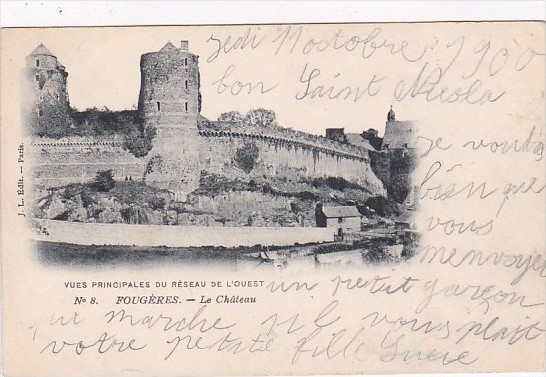 jedi 11 octobre 1900
bon Saint Nicola
je voudr
bien que
vous
m'envoyer
un petit garçon
qui marche s'il vous plait
votre petite fille Lucie
J. L. Edit. - Paris.
VUES PRINCIPALES DU RÉSEAU DE L'OUEST
No 8. FOUGÈRES. — Le Château